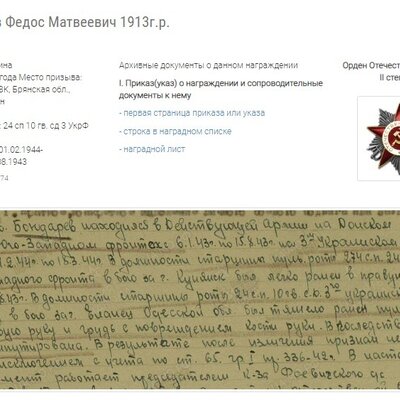 в Федос Матвеевич 1913г.р.
ина
года Место призыва:
ЗК, Брянская обл.,
н
: 24 сп 10 гв. сд 3 УкрФ
01.02.1944-
08.1943
74
Архивные документы о данном награждении
I. Приказ(указ) о награждении и сопроводительные
документы к нему
- первая страница приказа или указа
- строка в наградном списке
- наградной лист
Орден Отечест
II сте
в. Бондарев находился в Действующей Армии на Донском
Западном фронтах с 6.1.43г. по 15.8.43г. 3м Украинском
по 15.3.44г. В должности старшины роты 274 с.п.
фронта в бою за г. был легко ранен в правую
В должности старшины роты 24 с.п. 10
в бою за г. Одесской обл. был тяжело ранен
руку и грудь с повреждением кости руки. В последств
В результате после излечения признан не
исключением с учёта по ст. 65 гр. I пр. 336-42г. В наст
работает председателем к-за